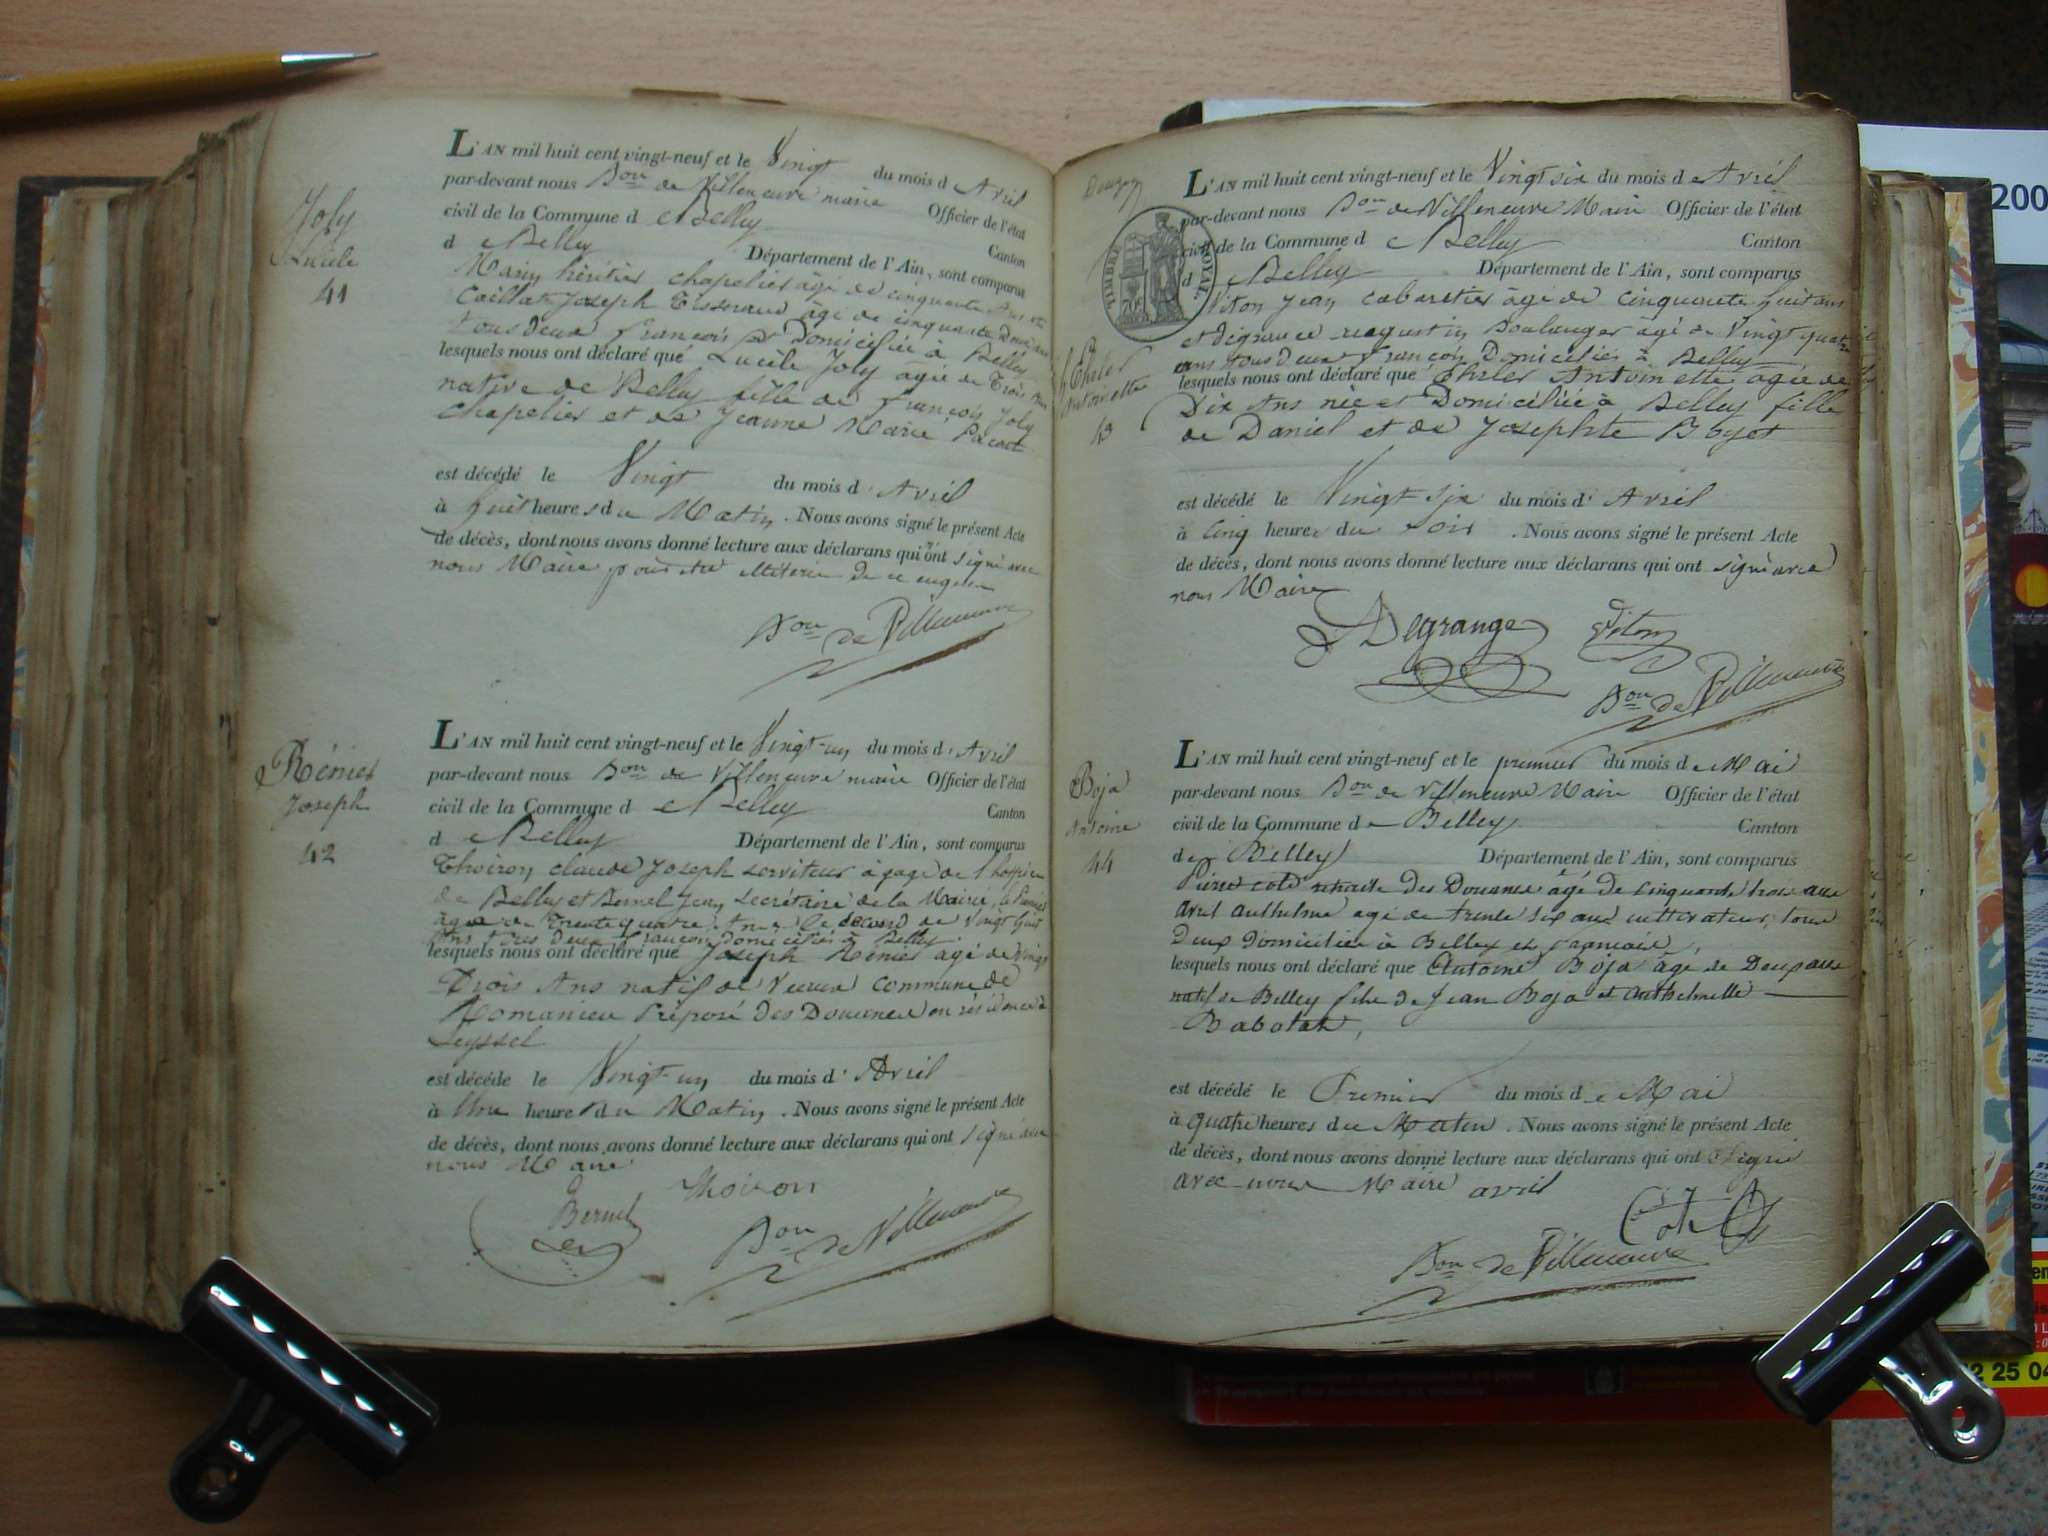 Joly
Lucile
41
L'AN mil huit cent vingt-neuf et le Vingt du mois d Avril
par-devant nous Bon de Villeneuve maire Officier de l'état
civil de la Commune d e Belley Canton
d e Belley Département de l'Ain, sont comparus
héritier chapelier âgé de cinquante
Joseph Tisserand âgé de cinquante Deux ans
tous deux français et Domiciliés à Belley
lesquels nous ont déclaré que Lucile Joly agée de Trois Ans
native de Belley fille de françois Joly
chapelier et de Jeanne Marie
est décédé le Vingt du mois d' Avril
à huit heures du Matin. Nous avons signé le présent Acte
de décès, dont nous avons donné lecture aux déclarans qui ont signé avec
nous Maire pour être de ce
Bon de Villeneuve
Rénier
Joseph
42
L'AN mil huit cent vingt-neuf et le Vingt-un du mois d' Avril
par-devant nous Bon de Villeneuve maire Officier de l'état
civil de la Commune d e Belley Canton
d e Belley Département de l'Ain, sont comparus
Thoiron claude Joseph serviteur à gage de l'hospice
de Belley et Bernel Jean Secrétaire de la Mairie, le Premier
âgé de Trente quatre Ans le second de Vingt huit
Ans tous deux français Domiciliés à Belley
lesquels nous ont déclaré que Joseph Rénier agé de Vingt
Trois Ans natif de commune de
Romanieu Préposé des Douanes en résidence à
Seyssel
est décédé le Vingt-un du mois d' Avril
à Une heure du Matin. Nous avons signé le présent Acte
de décès, dont nous avons donné lecture aux déclarans qui ont signé avec
nous Maire
Thoiron
Bernel
Bon de Villeneuve
TIMBRE ROYAL
Ehrler
Antoinette
43
L'AN mil huit cent vingt-neuf et le Vingt six du mois d e Avril
par-devant nous Bon de Villeneuve Maire Officier de l'état
civil de la Commune d e Belley Canton
d e Belley Département de l'Ain, sont comparus
Viton Jean cabaretier âgé de cinquante huit ans
et Degrange augustin Boulanger âgé de Vingt quatre
ans tous deux français Domiciliés à Belley
lesquels nous ont déclaré que Ehrler Antoinette agée de
Dix Ans née et Domiciliée à Belley fille
de Daniel et de Josephte Boyet
est décédé le Vingt six du mois d' Avril
à Cinq heures du soir. Nous avons signé le présent Acte
de décès, dont nous avons donné lecture aux déclarans qui ont signé avec
nous Maire
Degrange Viton
Bon de Villeneuve
Boja
Antoine
44
L'AN mil huit cent vingt-neuf et le premier du mois d e Mai
par-devant nous Bon de Villeneuve Maire Officier de l'état
civil de la Commune d e Belley Canton
de Belley Département de l'Ain, sont comparus
Pierre cote retraité des Douanes âgé de cinquante trois ans
avril anthelme agé de trente six ans cultivateur, tous
deux domiciliés à Belley et français,
lesquels nous ont déclaré que Antoine Boja âgé de Deux ans
natif de Belley fils de Jean Boja et anthelmette
Babolat,
est décédé le Premier du mois d e Mai
à quatre heures du Matin. Nous avons signé le présent Acte
de décès, dont nous avons donné lecture aux déclarans qui ont signé
avec nous Maire avril
Cote
Bon de Villeneuve
200
2 25 04